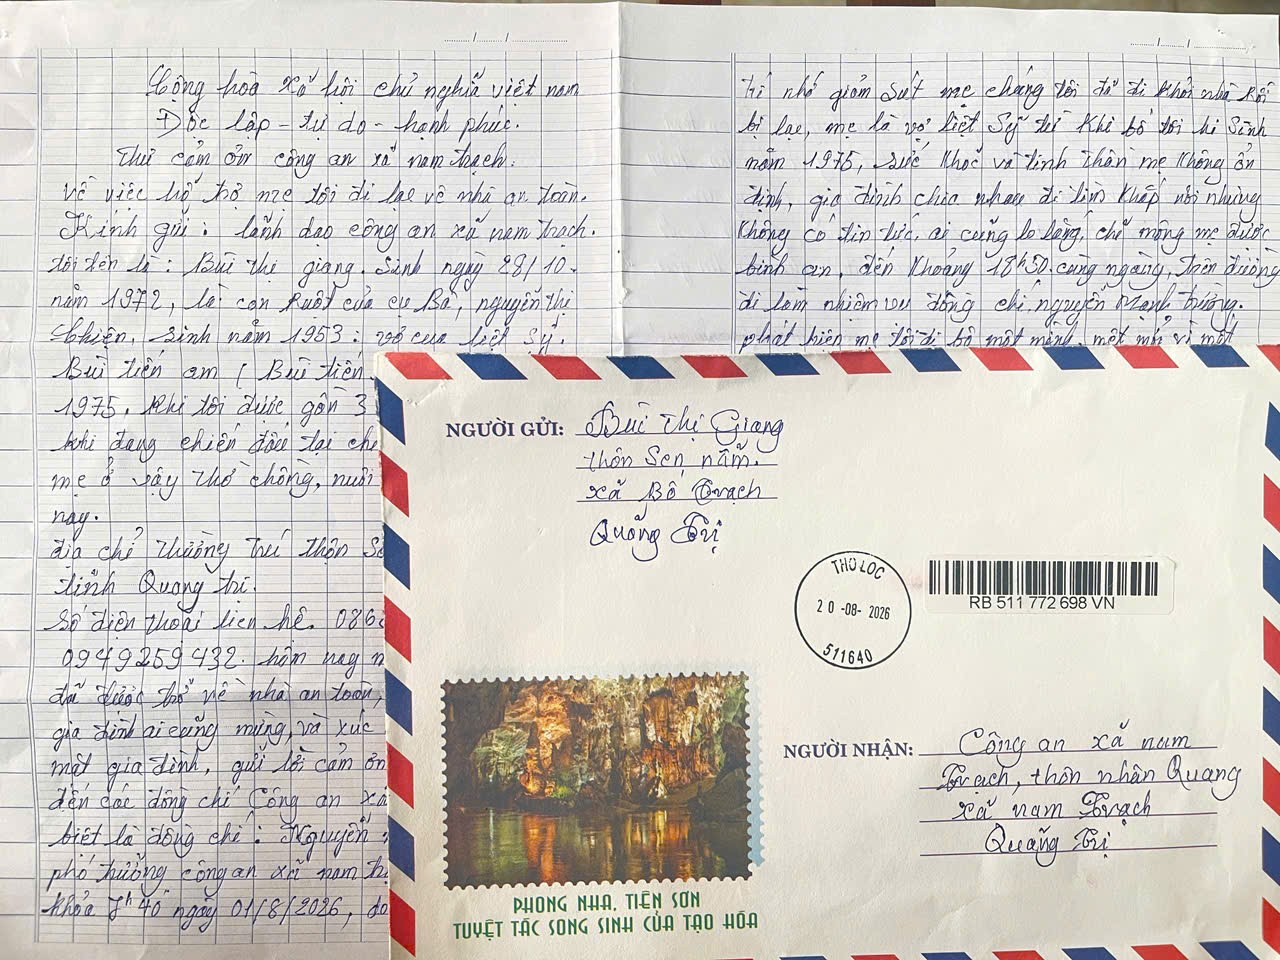 Cộng hòa xã hội chủ nghĩa việt nam
Độc lập - tự do - hạnh phúc.
Thư cảm ơn công an xã nam trạch.
về việc hỗ trợ mẹ tôi đi lạc về nhà an toàn.
Kính gửi: lãnh đạo công an xã nam trạch.
tôi tên là: Bùi thị giang. Sinh ngày 28/10.
năm 1972, là con ruột của cụ Bà, nguyễn thị
Chiên, sinh năm 1953: vợ của liệt sỹ.
Bùi tiến am ( Bùi tiến
1975. Khi tôi được gần 3
khi đang chiến đấu tại
mẹ ở vậy thờ chồng, nuôi
nay.
địa chỉ thường trú thôn
tỉnh Quảng trị.
Số điện thoại liên hệ. 086
0949259432. hôm nay
đã được trở về nhà an toàn,
gia đình ai cũng mừng, và xúc
mặt gia đình, gửi lời cảm ơn
đến các đồng chí Công an xã
biệt là đồng chí: Nguyễn
phó trưởng công an xã nam
khỏa 7h40 ngày 01/8/2026, do
trí nhớ giảm sút mẹ chúng tôi đã đi khỏi nhà rồi
bị lạc, mẹ là vợ liệt sỹ từ khi bố tôi hi sinh
năm 1975, sức khoẻ và tinh thần mẹ không ổn
định, gia đình chia nhau đi tìm khắp nơi nhưng
không có tin tức, ai cũng lo lắng, chỉ mong mẹ được
bình an, đến khoảng 18h50. cùng ngày, trên đường
đi làm nhiệm vụ đồng chí, nguyễn mạnh trường.
phát hiện mẹ tôi đi bộ một mình, mệt mỏi vì một
NGƯỜI GỬI: Bùi Thị Giang
thôn Sen nằm.
xã Bố Trạch
Quảng Trị
THỌ LỘC
20-08-2026
511640
RB 511 772 698 VN
NGƯỜI NHẬN: Công an xã nam
Trạch, thôn nhân Quang
xã nam Trạch
Quảng Trị
PHONG NHA, TIÊN SƠN
TUYỆT TÁC SONG SINH CỦA TẠO HÓA